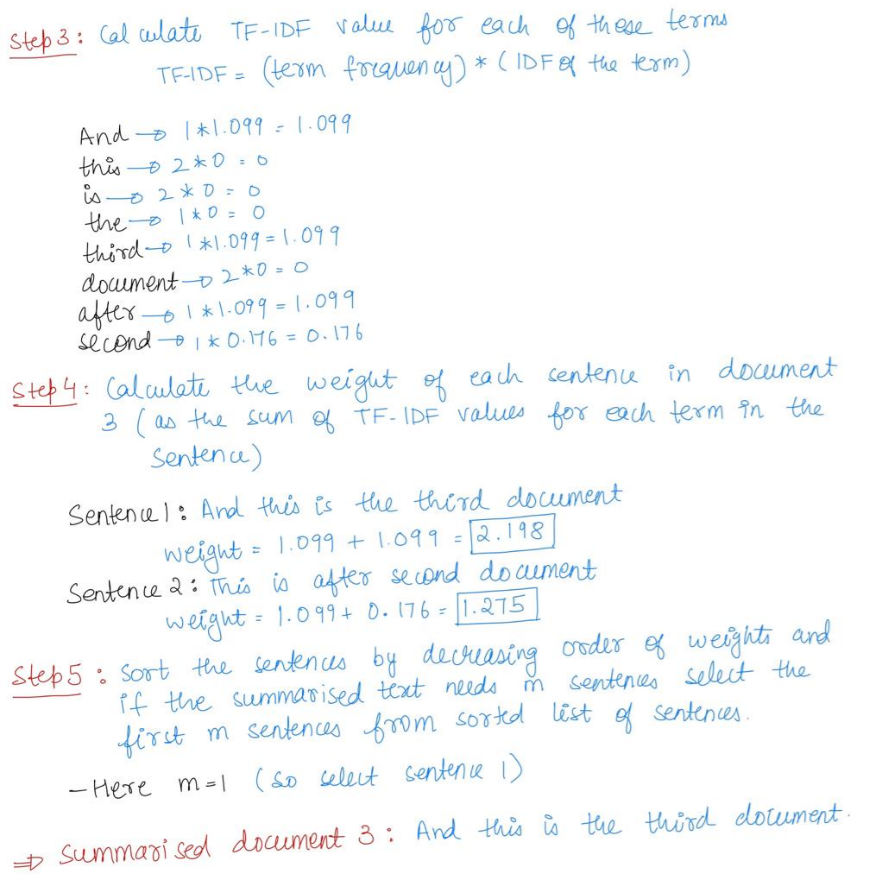 Step 3: Calculate TF-IDF value for each of these terms
TF-IDF = (term frequency) * (IDF of the term)
And → 1*1.099 = 1.099
this → 2*0 = 0
is → 2*0 = 0
the → 1*0 = 0
third → 1*1.099 = 1.099
document → 2*0 = 0
after → 1*1.099 = 1.099
second → 1*0.176 = 0.176
Step 4: Calculate the weight of each sentence in document
3 (as the sum of TF-IDF values for each term in the
sentence)
Sentence 1: And this is the third document
weight = 1.099 + 1.099 = 2.198
Sentence 2: This is after second document
weight = 1.099 + 0.176 = 1.275
Step 5: Sort the sentences by decreasing order of weights and
if the summarised text needs m sentences select the
first m sentences from sorted list of sentences.
- Here m=1 (so select sentence 1)
⇒ Summarised document 3: And this is the third document.